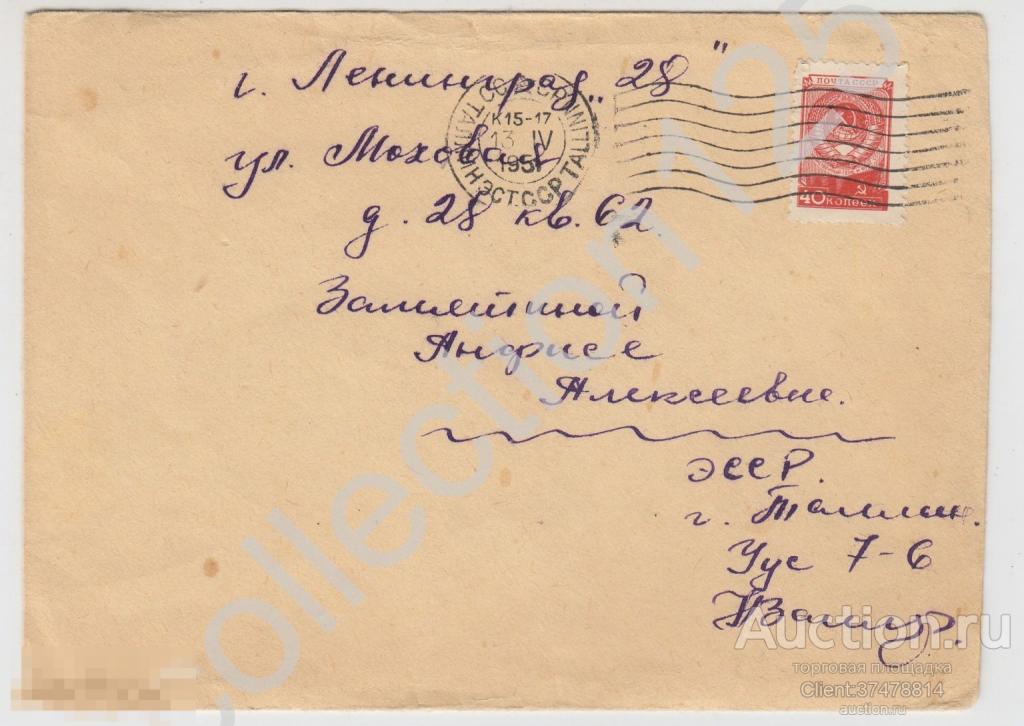 г. Ленинград „28"
ул. Моховая
д. 28 кв. 62.
Замятиной
Анфисе
Алексеевне.
ЭССР.
г. Таллин.
Уус 7-6
ПОЧТА СССР
40 КОПЕЕК
К15-17
13 IV
1951
ТАЛЛИН ЭСТ.ССР TALLINN
collection 125
Auction.ru
торговая площадка
Client:37478814
auction.ru